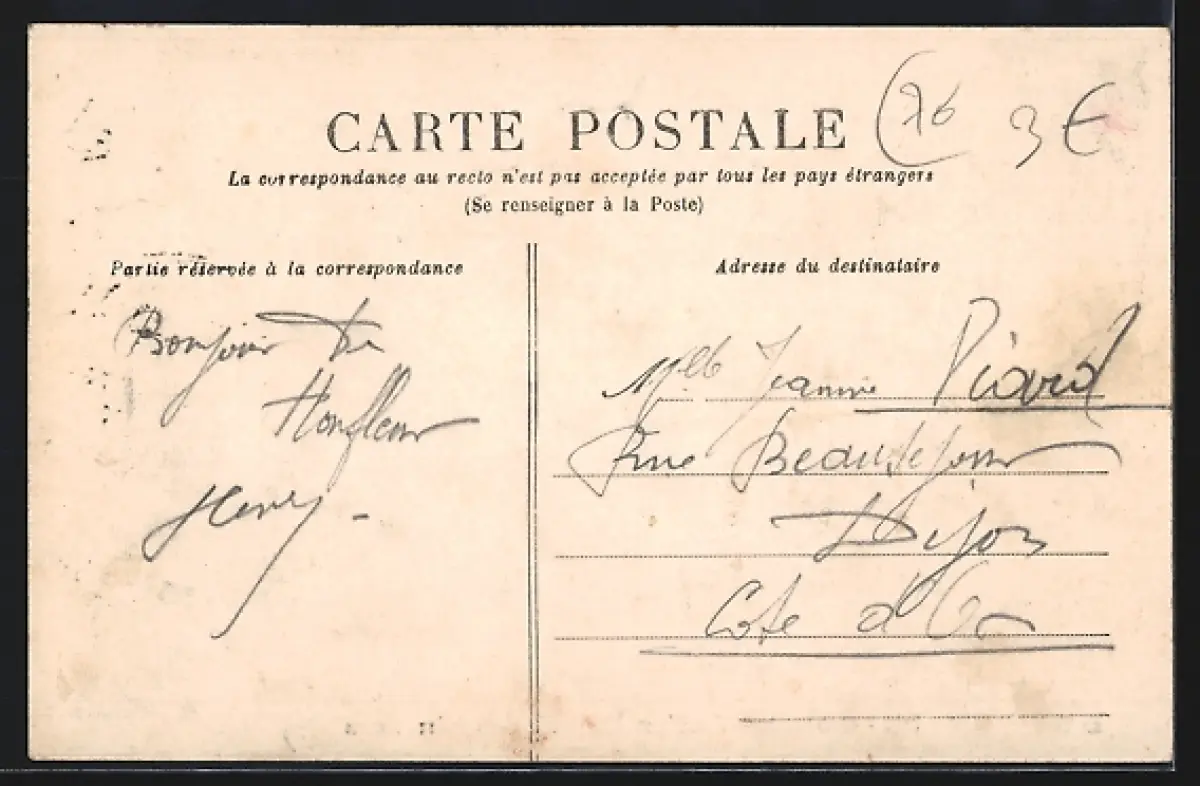 CARTE POSTALE
(76
3€
La correspondance au recto n'est pas acceptée par tous les pays étrangers
(Se renseigner à la Poste)
Partie réservée à la correspondance
Bonjour De
Honfleur
Henry -
Adresse du destinataire
Mlle Jeanne Picard
Rue Beauséjour
Dijon
Cote d'Or